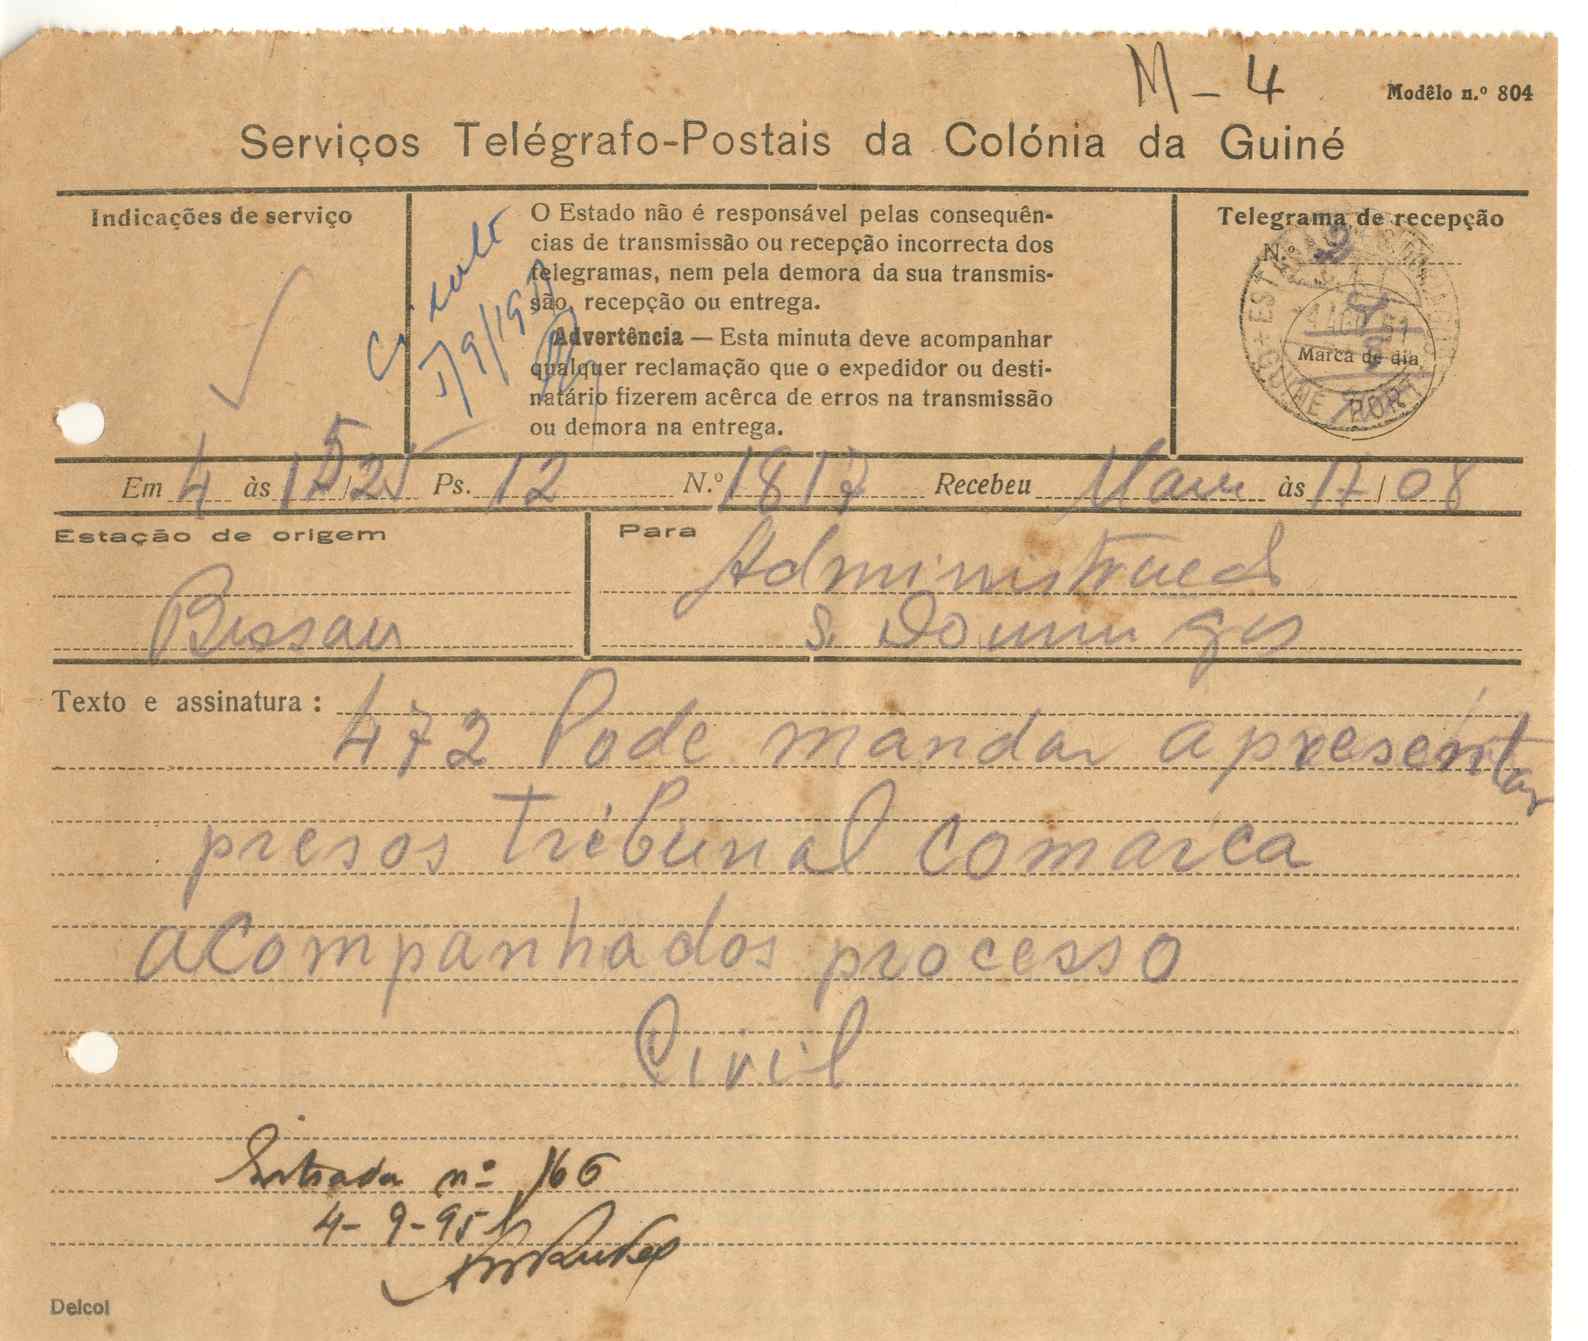 M - 4
Modêlo n.º 804
Serviços Telégrafo-Postais da Colónia da Guiné
Indicações de serviço
O Estado não é responsável pelas consequên-
cias de transmissão ou recepção incorrecta dos
telegramas, nem pela demora da sua transmis-
são, recepção ou entrega.
Advertência — Esta minuta deve acompanhar
qualquer reclamação que o expedidor ou desti-
natário fizerem acêrca de erros na transmissão
ou demora na entrega.
Telegrama de recepção
N.º 9
Marca de dia
GUINÉ PORT
Em 4 às 15/25 Ps. 12 N.º 1817 Recebeu às 17/08
Estação de origem
Bissau
Para
S. Domingos
Texto e assinatura:
472 Pode mandar apresentar
presos tribunal comarca
acompanhados processo
Civil
Entrada nº 166
4-9-951
Delcol